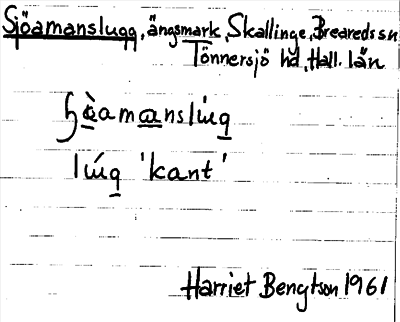 Sjöamanslugg, ängsmark, Skallinge, Breareds sn
Tönnersjö hd, Hall. län
ɧèamanslúg
lúg 'kant'
Harriet Bengtson 1961